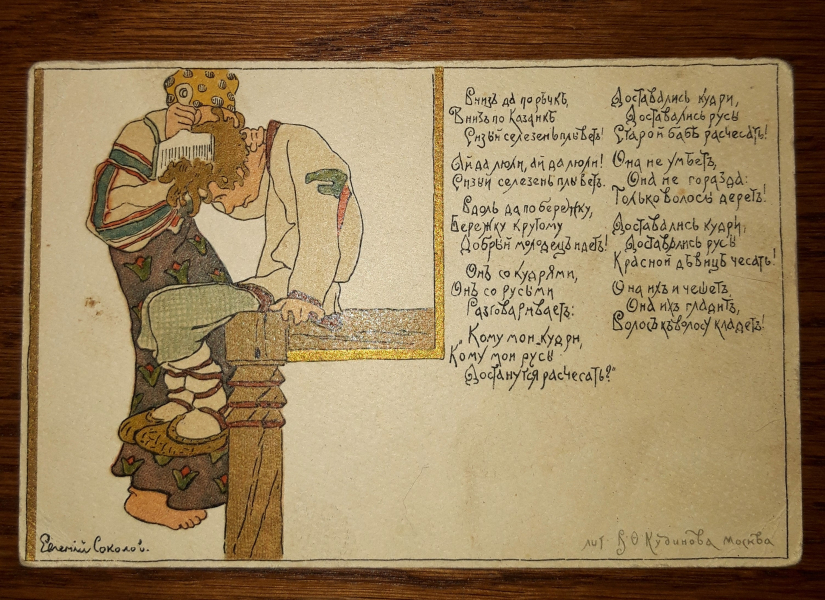 Внизъ да по рѣчкѣ,
Внизъ по Казанкѣ
Сизый селезень плыветъ!
Ай да люли, ай да люли!
Сизый селезень плыветъ.
Вдоль да по бережку,
Бережку крутому
Добрый молодецъ идетъ!
Онъ со кудрями,
Онъ со русыми
Разговариваетъ:
„Кому мои кудри,
Кому мои русы
Достанутся расчесать?"
Доставались кудри,
Доставались русы
Старой бабѣ расчесать!
Она не умѣетъ,
Она не горазда:
Только волосы деретъ!
Доставались кудри,
Доставались русы
Красной дѣвицѣ чесать!
Она ихъ и чешетъ,
Она ихъ гладитъ,
Волосъ къ волосу кладетъ!
Евгеній Соколов.
лит. В. Ѳ Кудинова Москва